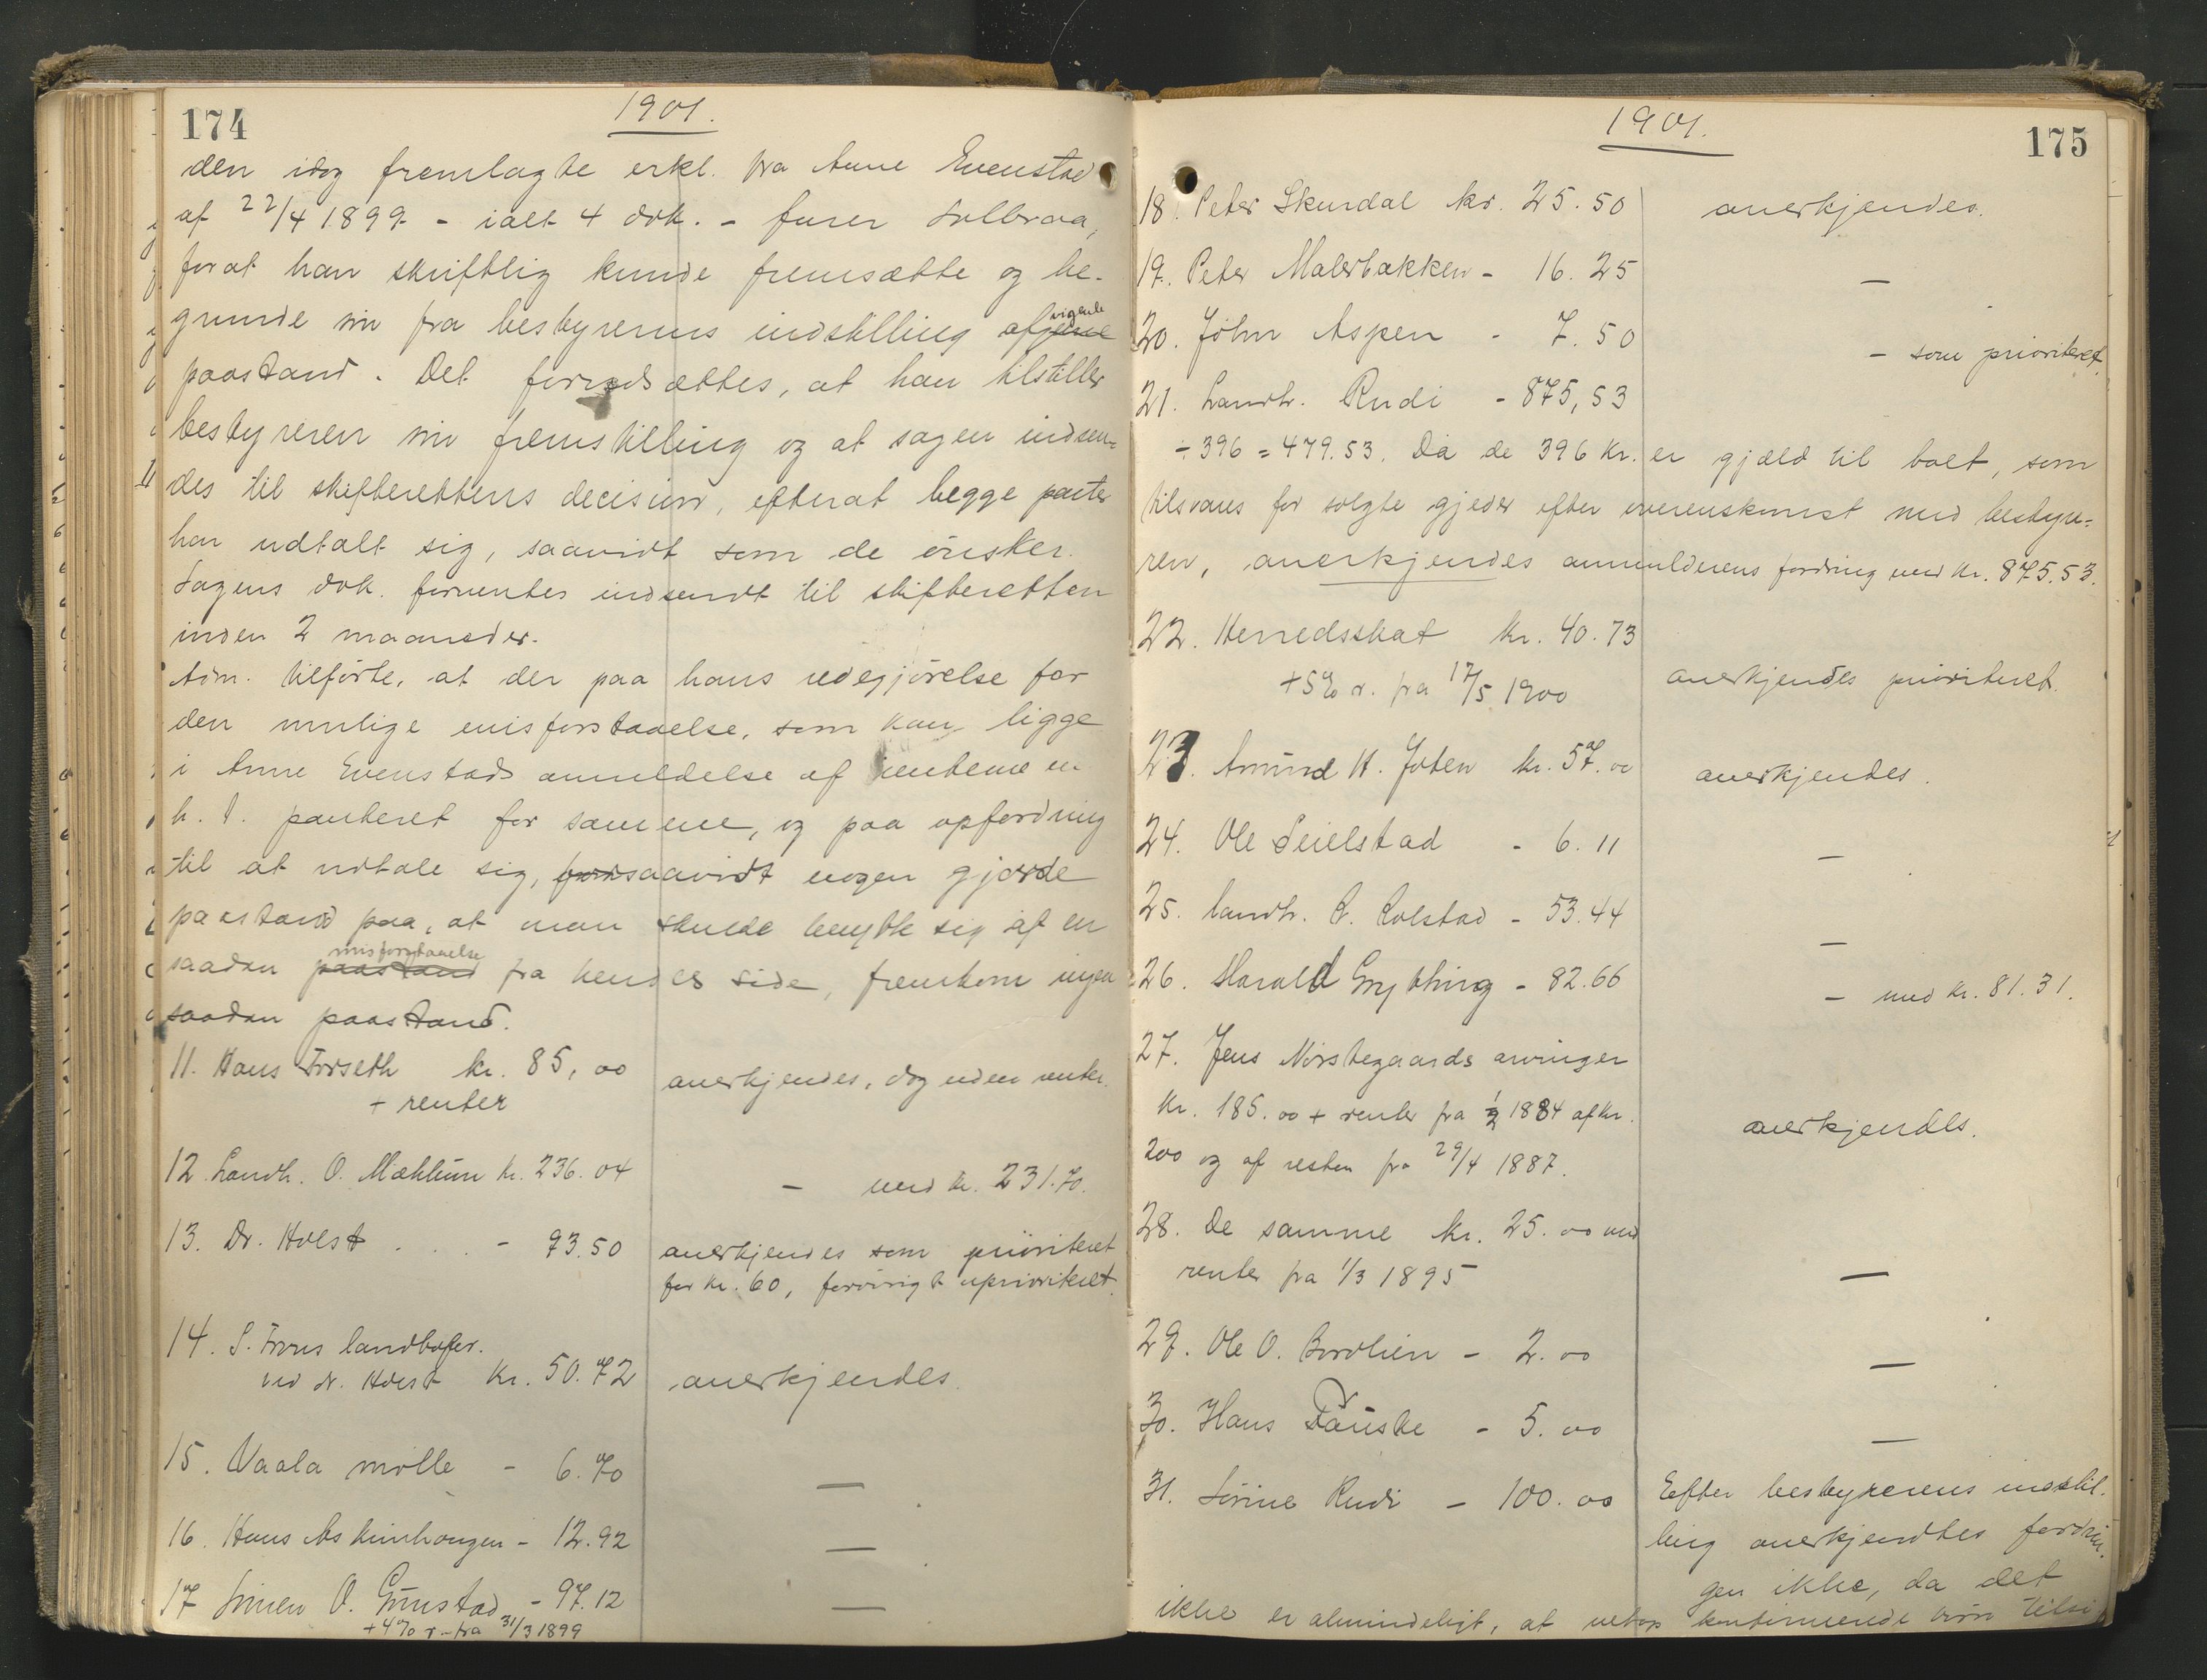 174
1901.
den idag fremlagte erkl. fra Anne Evenstad
af 22/4 1899 - ialt 4 dok. - furer Solbraa,
forat han skriftlig kunde fremsætte og be-
grunde sin fra bestyrerens indstilling afvigende
paastand. Det forudsættes, at han tilstiller
bestyreren sin fremstilling og at sagen indsen-
des til skifterettens decision, efterat begge parter
har udtalt sig, saavidt som de ønsker.
Sagens dok. forventes indsendt til skifteretten
inden 2 maaneder.
Adm. tilførte, at der paa hans redegjørelse for
den mulige misforstaaelse, som kan ligge
i Anne Evenstads anmeldelse af renterne en
h. t. panteret for samme, og paa opfordring
til at udtale sig, forsaavidt nogen gjorde
paastand paa, at man skulde benytte sig af en
saadan paastand misforstaaelse fra hendes side, fremkom ingen
saadan paastand.
11. Hans Forseth kr. 85,00 anerkjendes, dog uden renter.
+ renter
12. Landh. O. Mæhlum kr. 236.04 - med kr. 231.70.
13. Dr. Holst . . . - 93.50 anerkjendes som prioriteret
for kr. 60, forøvrigt uprioriteret.
14. S. Frons landhofor.
ved dr. Holst Kr. 50.72 anerkjendes.
15. Vaala mølle - 6.70 —
16. Hans Askimhaugen - 12.92 —
17 Simen O. Grimstad - 97.12 —
+ 4% r. fra 31/3 1899
1901.
175
18. Peter Skurdal kr. 25.50 anerkjendes.
19. Peter Malerbakken - 16.25 —
20. John Aspen - 7.50 - som prioriteret.
21. Landh. Rudi - 875,53
÷ 396 = 479.53. Da de 396 kr. er gjæld til boet, som
tilsvares for solgte gjeder efter overenskomst med besty-
ren, anerkjendes anmelderens fordring med kr. 875.53.
22. Herredsskat kr. 40.73
+ 5% r. fra 17/5 1900 anerkjendes prioriteret.
23. Amund H. Joten kr. 57.00 anerkjendes.
24. Ole Seielstad - 6.11 —
25. Landh. P. Rolstad - 53.44 —
26. Harald Grytting - 82.66 - med kr. 81.31.
27. Jens Nørstegaards arvinger
kr. 185.00 + renter fra 1/2 1884 af kr.
200 og af resten fra 29/4 1887. anerkjendes.
28. De samme kr. 25.00 med
renter fra 1/3 1895 —
29. Ole O. Bordlien - 2.00 —
30. Hans Fauske - 5.00 —
31. Sørine Rudi - 100.00 Efter bestyrerens indstil-
ling anerkjendtes fordrin-
gen ikke, da det
ikke er almindeligt, at netop konfirmerede børn tilsi-